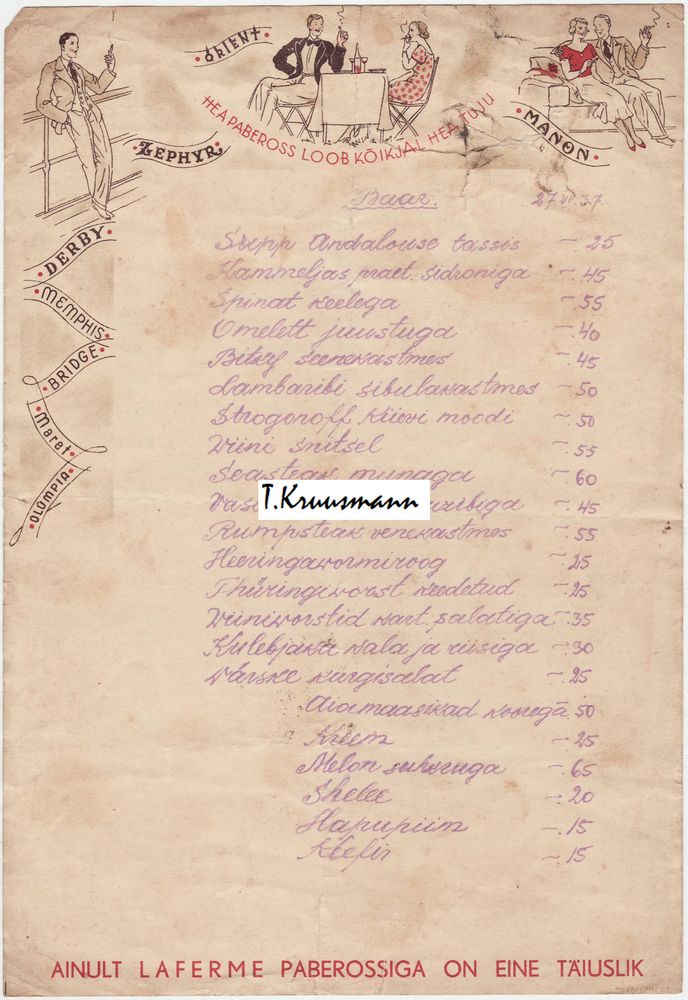 ORIENT
ZEPHYR
HEA PABEROSS LOOB KÕIKJAL HEA TUJU
MANON
DERBY
MEMPHIS
BRIDGE
Maret
OLOMPIA
Baar. 27.VI.37.
Supp Andalouse tassis -.25
Kammeljas praet. sidroniga -.45
Spinat keelega -.55
Omelett juustuga -.40
Bitky seenekastmes -.45
Lambaribi sibulakastmes -.50
Strogonoff Kiievi moodi -.50
Wiini snitsel -.55
Seasteak munaga -.60
T.Kruusmann
-.45
Rumpsteak venekastmes -.55
Heeringawormiroog -.25
Thüringiworst keedetud -.25
Wiiniworstid kart. salatiga -.35
Kulebjaka kala ja riisiga -.30
Värske kurgisalat -.25
Aiamaasikad koorega .50
Kreem -.25
Melon suhkruga -.65
Shelee -.20
Hapupiim -.15
Keefir -.15
AINULT LAFERME PABEROSSIGA ON EINE TÄIUSLIK